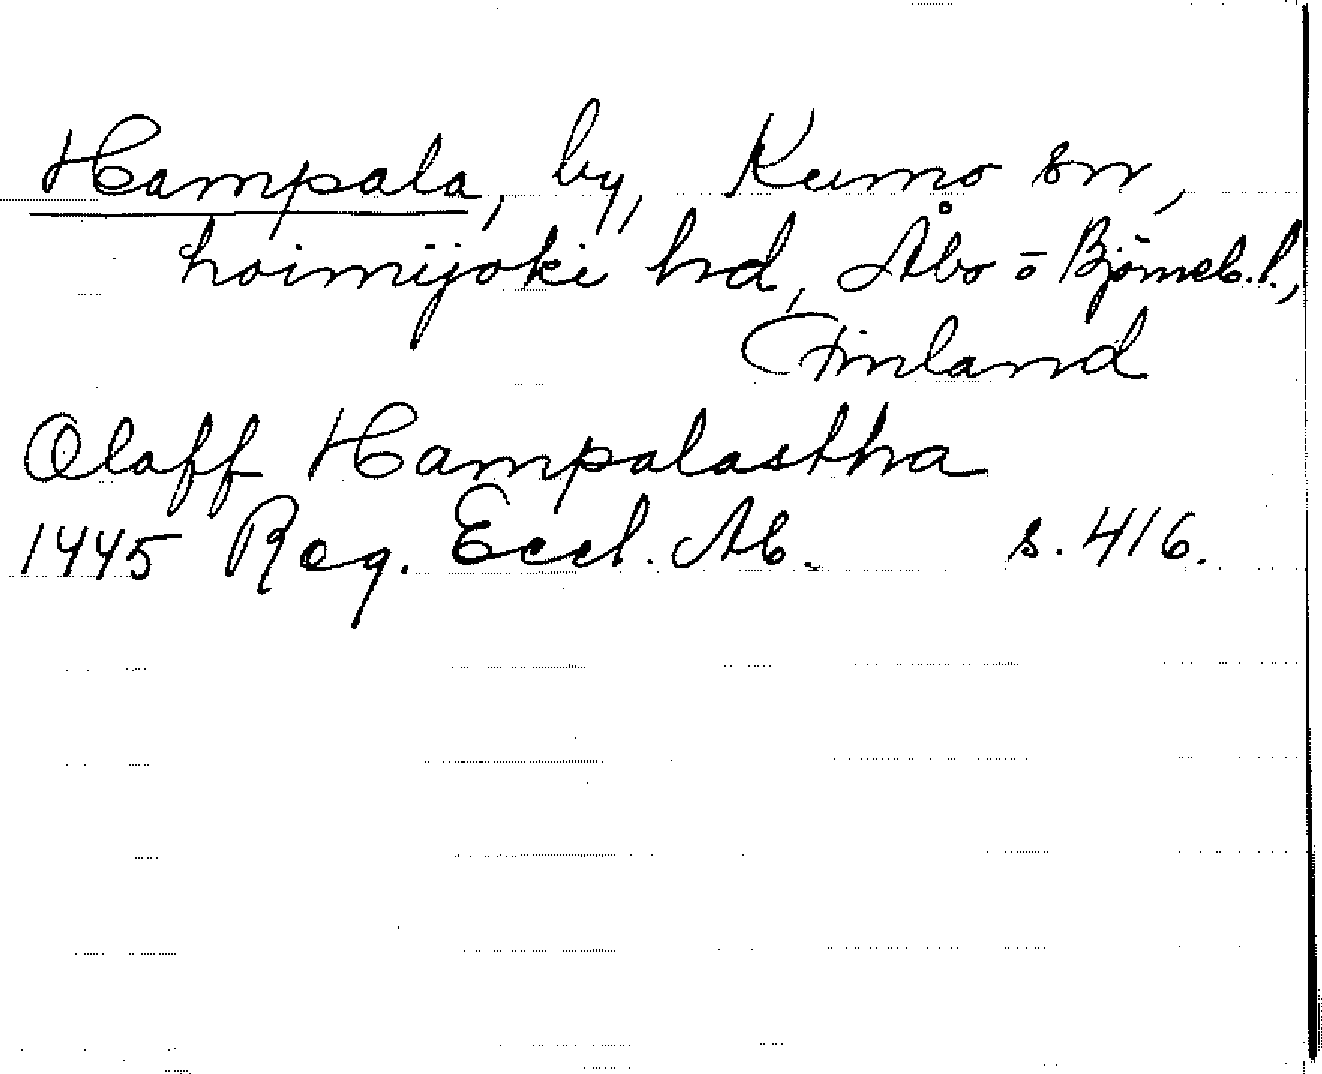 Hampala, by, Kumo sn,
loimijoki hd, Åbo o Björneb. l.,
Finland
Olaff Hampalastha
1445 Reg. Eccl. Ab. s. 416.